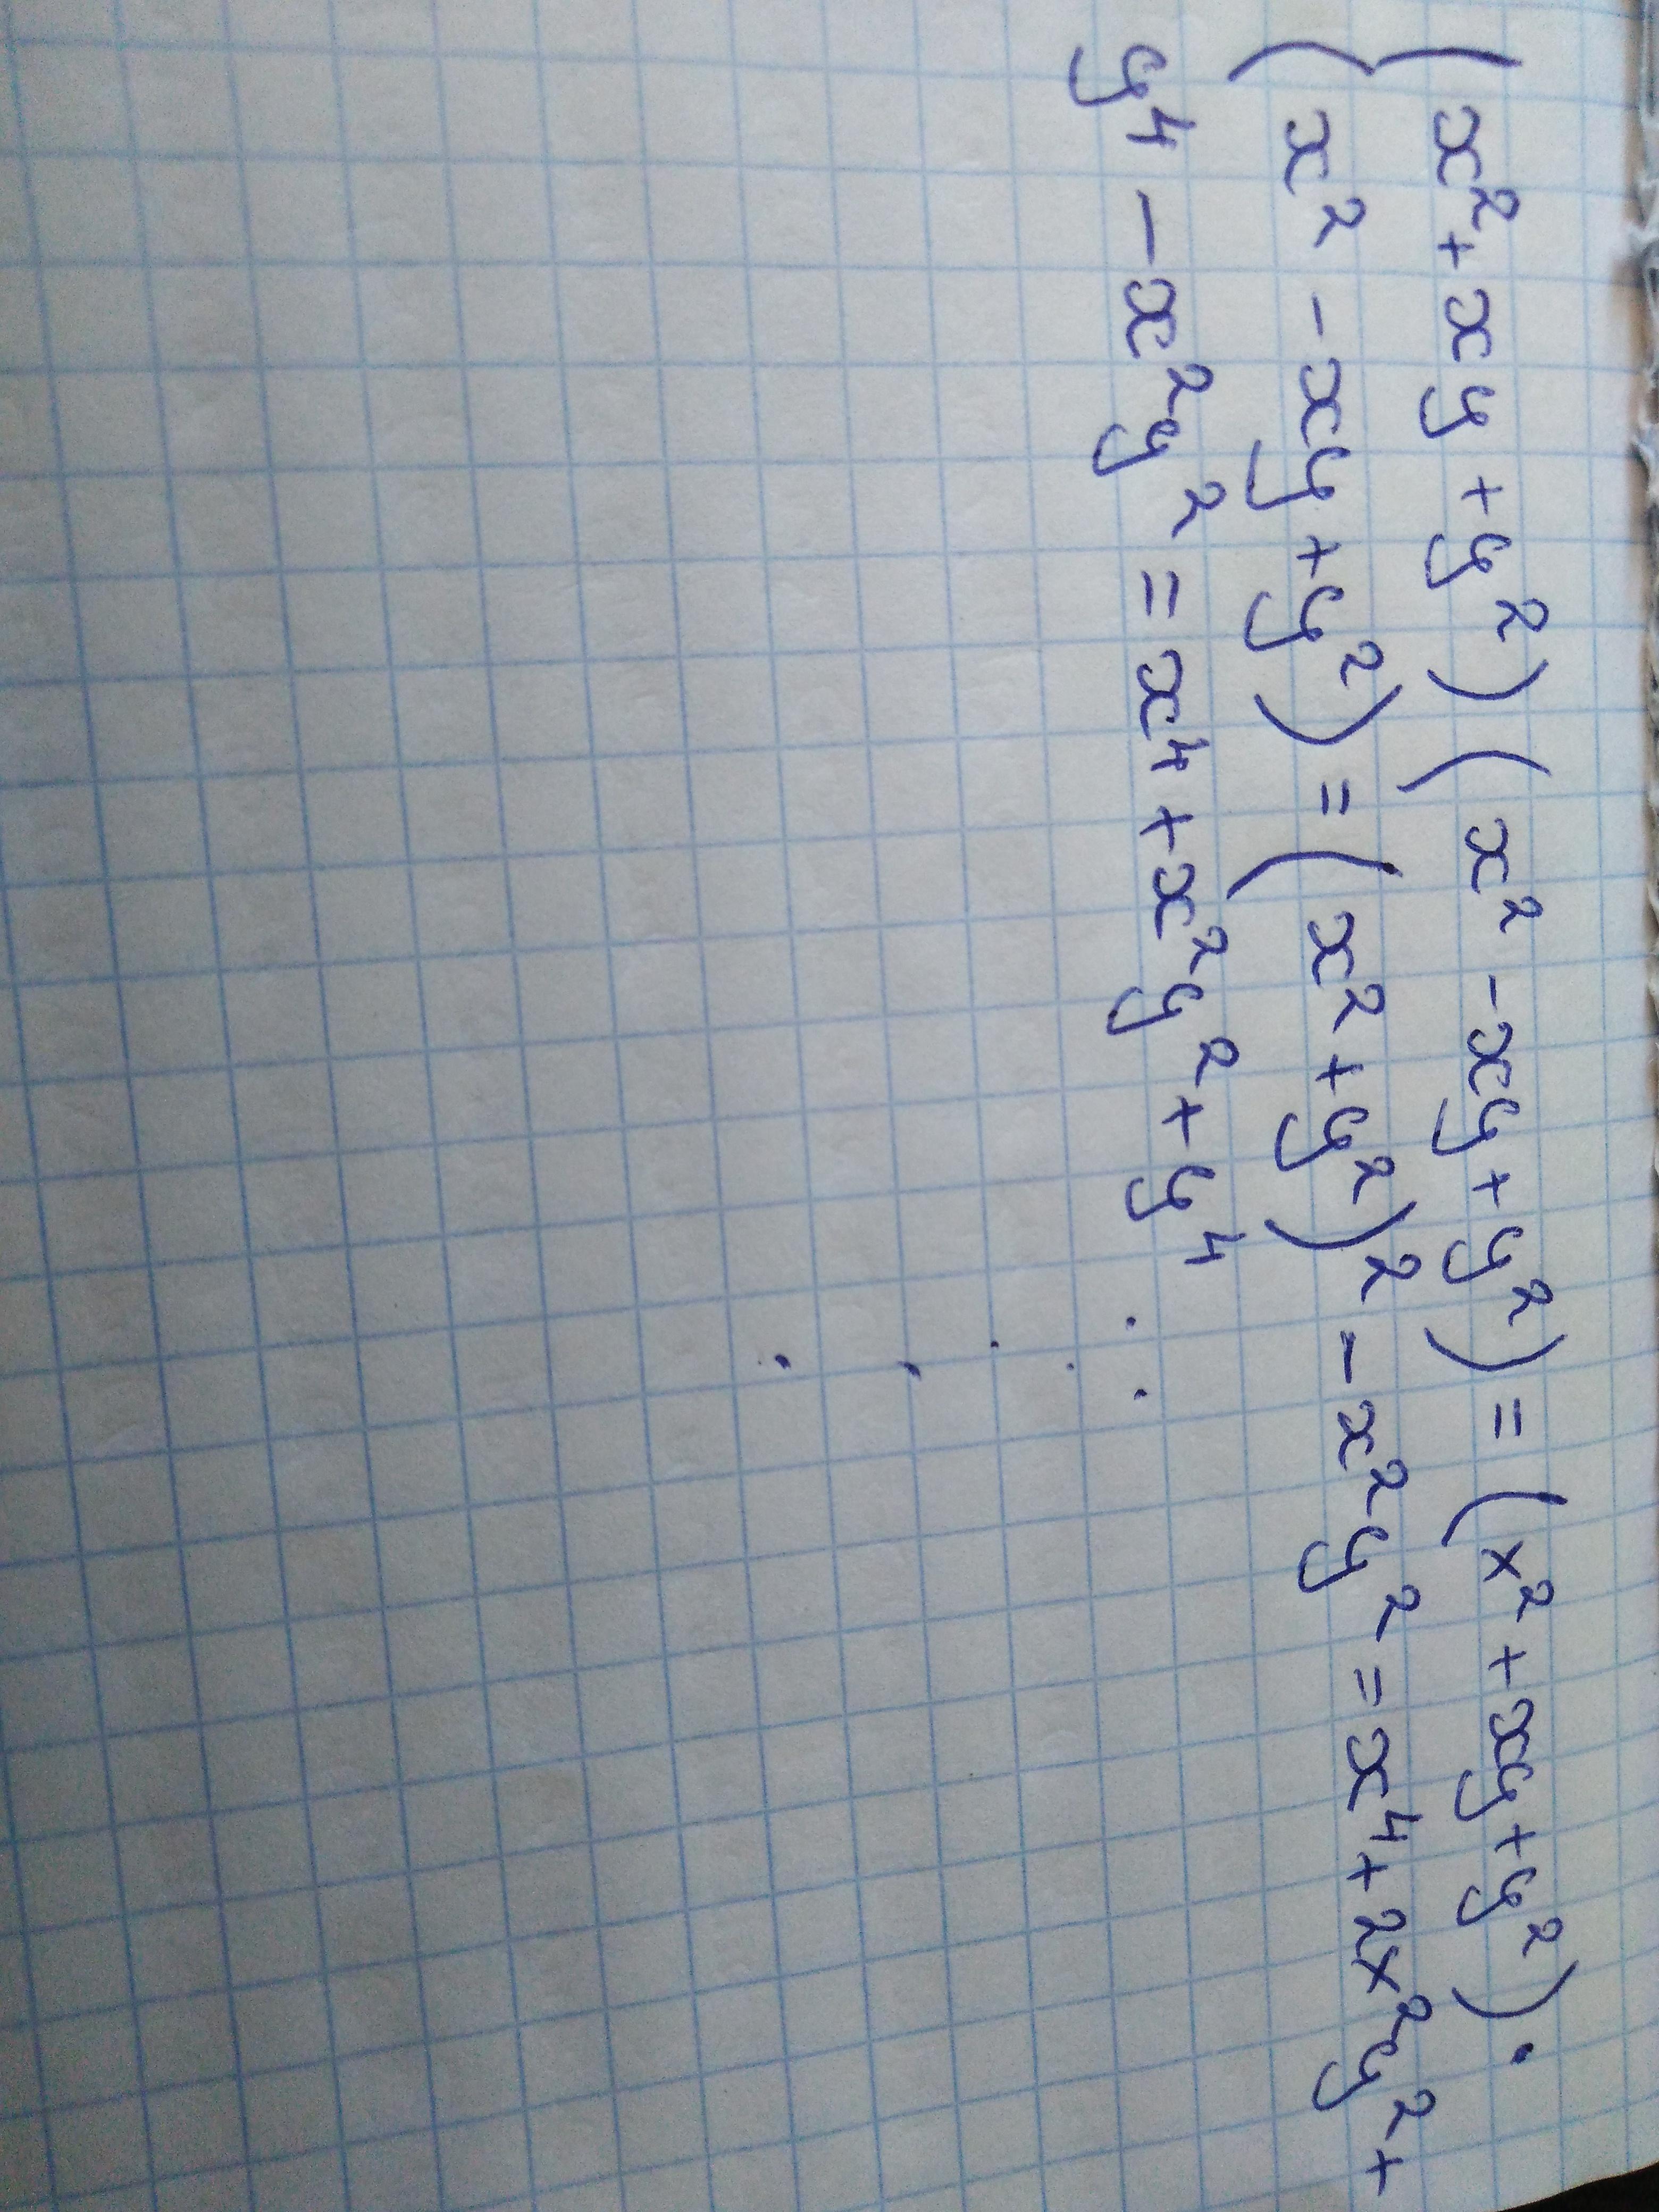 (x²+xy+y²)(x²-xy+y²)=(x²+xy+y²)·
(x²-xy+y²)=(x²+y²)²-x²y²=x⁴+2x²y²+
y⁴-x²y²=x⁴+x²y²+y⁴